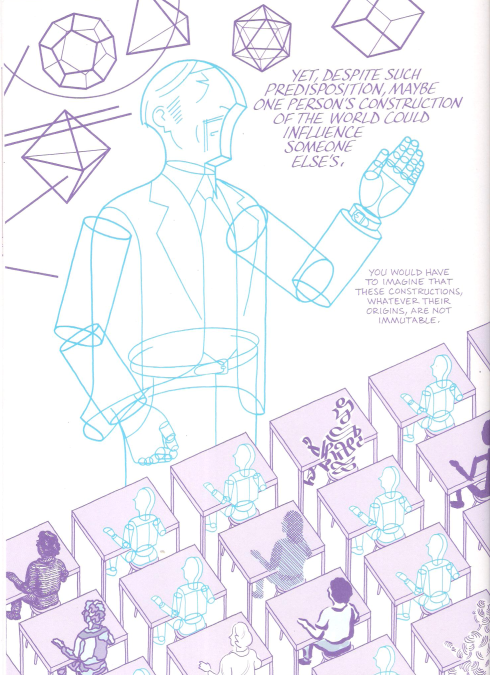 YET, DESPITE SUCH
PREDISPOSITION, MAYBE
ONE PERSON'S CONSTRUCTION
OF THE WORLD COULD
INFLUENCE
SOMEONE
ELSE'S.
YOU WOULD HAVE
TO IMAGINE THAT
THESE CONSTRUCTIONS,
WHATEVER THEIR
ORIGINS, ARE NOT
IMMUTABLE.